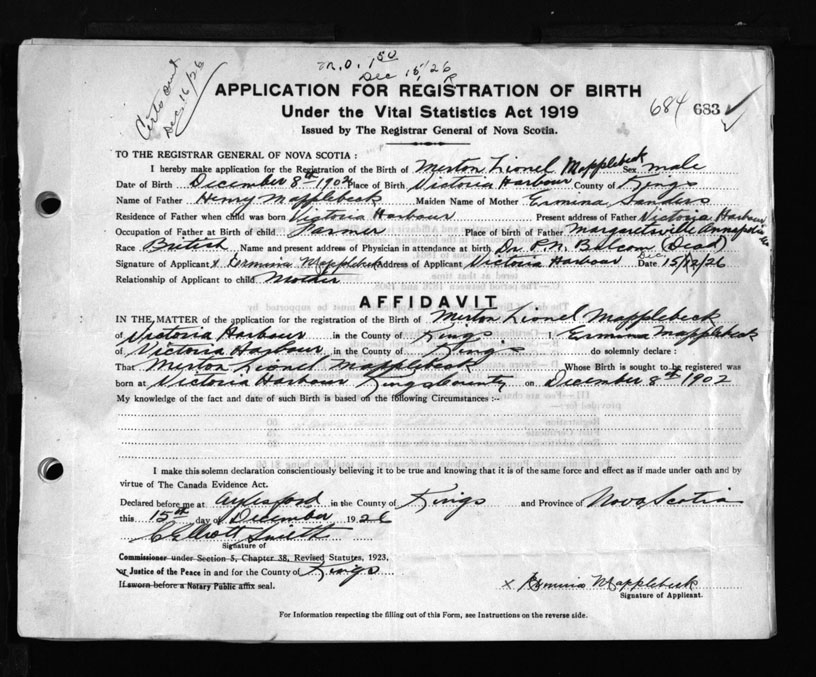 M.O. 1.50
Dec 15/26
Certs out
Dec. 16/26
APPLICATION FOR REGISTRATION OF BIRTH
684 683
Under the Vital Statistics Act 1919
Issued by The Registrar General of Nova Scotia.
TO THE REGISTRAR GENERAL OF NOVA SCOTIA :
I hereby make application for the Registration of the Birth of Merton Lionel Mapplebeck Sex male
Date of Birth December 8th 1902 Place of Birth Victoria Harbour County of Kings
Name of Father Henry Mapplebeck Maiden Name of Mother Ermina Sanders
Residence of Father when child was born Victoria Harbour Present address of Father Victoria Harbour
Occupation of Father at Birth of child Farmer Place of birth of Father Margaretsville Annapolis
Race British Name and present address of Physician in attendance at birth Dr. P.N. Balcom (Dead)
Signature of Applicant x Ermina Mapplebeck Address of Applicant Victoria Harbour Date Dec. 15/12/26
Relationship of Applicant to child Mother
AFFIDAVIT
IN THE MATTER of the application for the registration of the Birth of Merton Lionel Mapplebeck
of Victoria Harbour in the County of Kings I, Ermina Mapplebeck
of Victoria Harbour in the County of King's do solemnly declare :
That Merton Lionel Mapplebeck Whose Birth is sought to be registered was
born at Victoria Harbour Kings County on December 8th 1902
My knowledge of the fact and date of such Birth is based on the following Circumstances :-
I make this solemn declaration conscientiously believing it to be true and knowing that it is of the same force and effect as if made under oath and by
virtue of The Canada Evidence Act.
Declared before me at Aylesford in the County of Kings and Province of Nova Scotia
this 15th day of December 1926
C Elliott Smith
Signature of
Commissioner under Section 5, Chapter 38, Revised Statutes, 1923,
or Justice of the Peace in and for the County of Kings
If sworn before a Notary Public affix seal.
x Ermina Mapplebeck
Signature of Applicant.
For Information respecting the filling out of this Form, see Instructions on the reverse side.